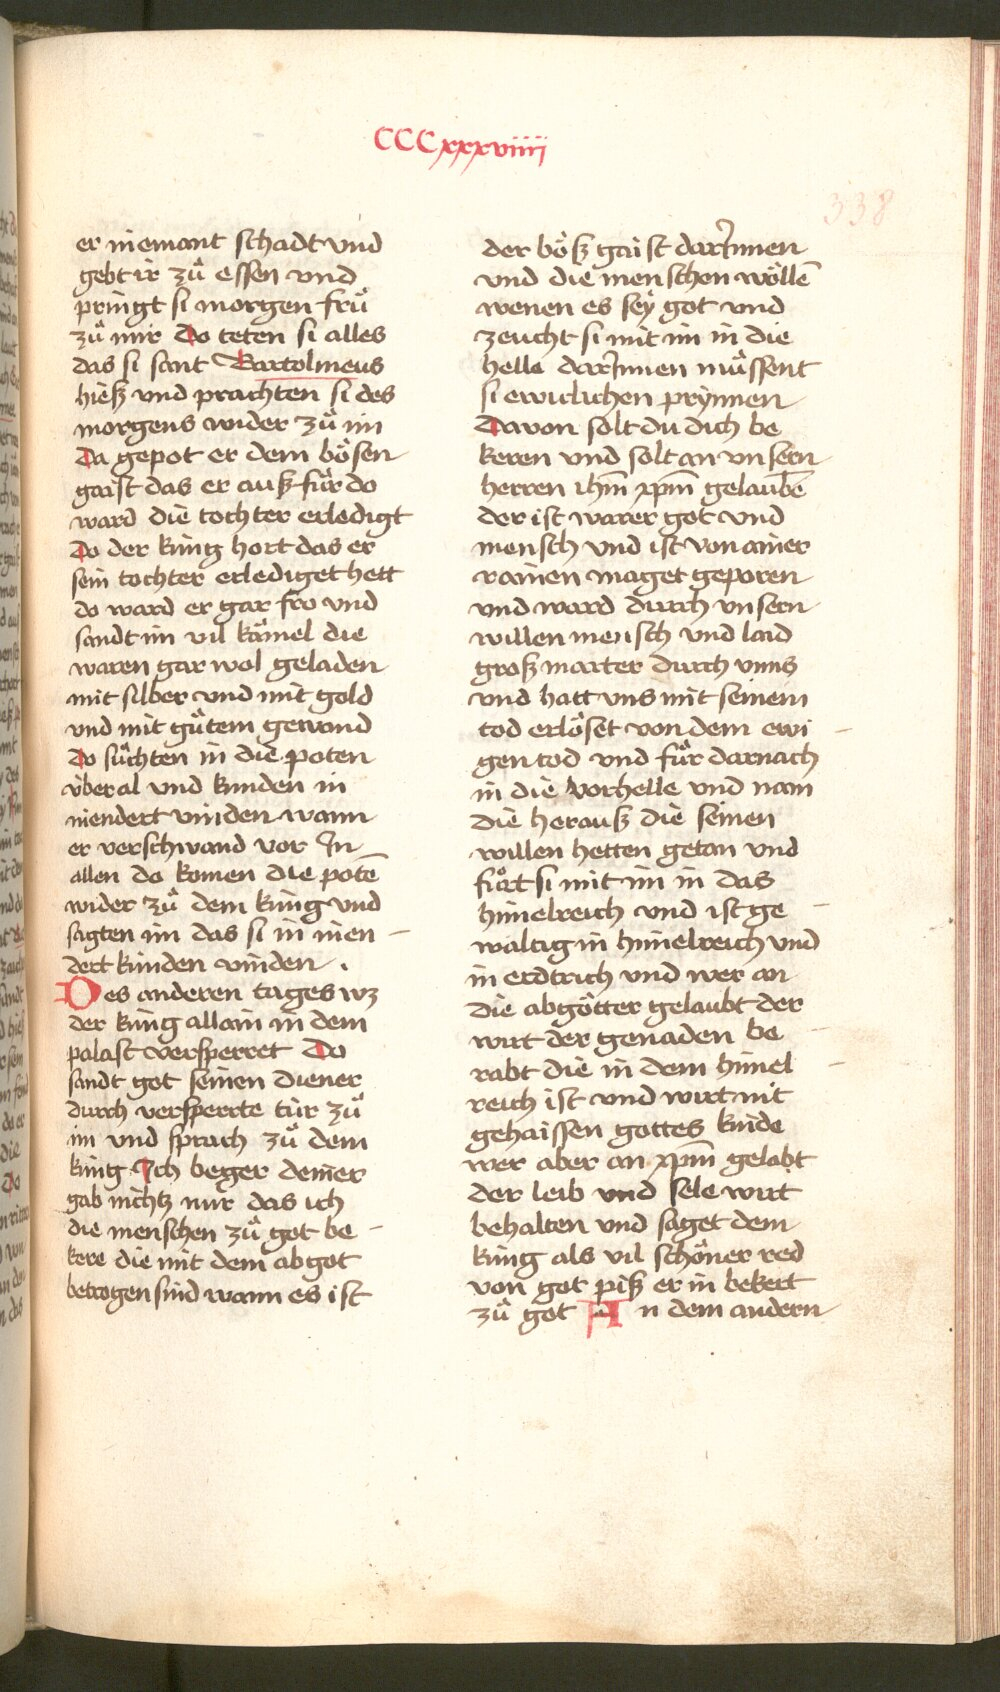 CCCxxxviiii
338
er niemant schadt vnd
gebt ir zuͦ essen vnd
pringt si morgen fruͤ
zuͦ mir Do teten si alles
das si sant Bartolmeus
hieß vnd prachten si des
morgens wider zuͦ im
Da gepot er dem boͤsen
gaist das er auß fuͤr do
ward die tochter erledigt
Do der king hort das er
sein tochter erlediget hett
do ward er gar fro vnd
sandt im vil kaͤmel die
waren gar wol geladen
mit silber vnd mit gold
vnd mit guͤtem gewand
Do suͤchten in die poten
v̈ber al vnd kunden in
niendert vinden wann
er verschwand vor Jn
allen do komen die potē
wider zuͦ dem king vnd
sagten im das si in nien
dert kunden vinden .
Des anderen tages wz
der king allain in dem
palast versperret Do
sandt got seinen diener
durch versperrte tür zuͦ
im vnd sprach zuͦ dem
king Ich beger deiner
gab nichtz nur das ich
die menschen zuͦ got be
kere die mit dem abgot
betrogen sind wann es ist
der boͤß gaist darJnnen
vnd die menschen woͤllē
wenen es seÿ got vnd
zeucht si mit im in die
helle darJnnen muͤssent
si ewiclichen prÿnnen
Davon solt du dich be
keren vnd solt an vnsern
herren ihm̄ xp̄m gelaubē
der ist warer got vnd
mensch vnd ist von ainer
rainen maget geporen
vnd ward durch vnsern
willen mensch vnd laid
groß marter durch vnns
vnd hatt vns mit seinem
tod erloͤset von dem ewi
gen tod vnd fuͤr darnach
in die vorhelle vnd nam
die herauß die seinen
willen hetten getan vnd
fuͤrt si mit im in das
himelreich vnd ist ge
waltig in himelreich vnd
in erdtrich vnd wer an
die abgoͤtter gelaubt der
wirt der genaden be
rabt die in dem himel
reich ist vnd wirt nit
gehaissen gottes kinde
wer aber an xp̄m gelabt
der leib vnd sele wirt
behalten vnd saget dem
king als vil schoͤner red
von got piß er in bekert
zuͦ got An dem andern